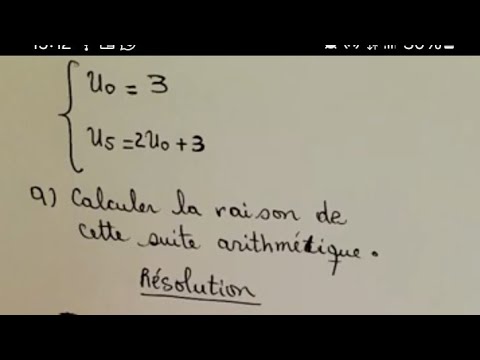 U₀ = 3
U₅ = 2U₀ + 3
a) Calculer la raison de
cette suite arithmétique.
Résolution